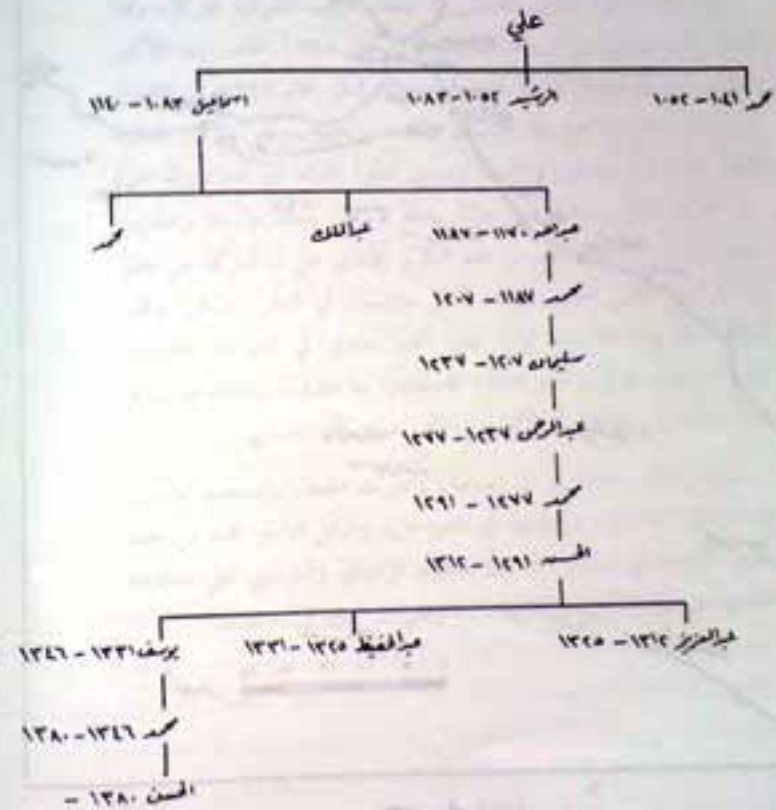 علي
محمد ١٠٤١ - ١٠٥٢ الرشيد ١٠٥٢ - ١٠٨٣ اسماعيل ١٠٨٣ - ١١٤٠
عبدالله ١١٧٠ - ١١٨٧ عبدالملك محمد
محمد ١١٨٧ - ١٢٠٧
سليمان ١٢٠٧ - ١٢٣٧
عبدالرحمن ١٢٣٧ - ١٢٧٧
محمد ١٢٧٧ - ١٢٩١
الحسن ١٢٩١ - ١٣١٢
عبدالعزيز ١٣١٢ - ١٣٢٥ عبدالحفيظ ١٣٢٥ - ١٣٣١ يوسف ١٣٣١ - ١٣٤٦
محمد ١٣٤٦ - ١٣٨٠
الحسن ١٣٨٠ -